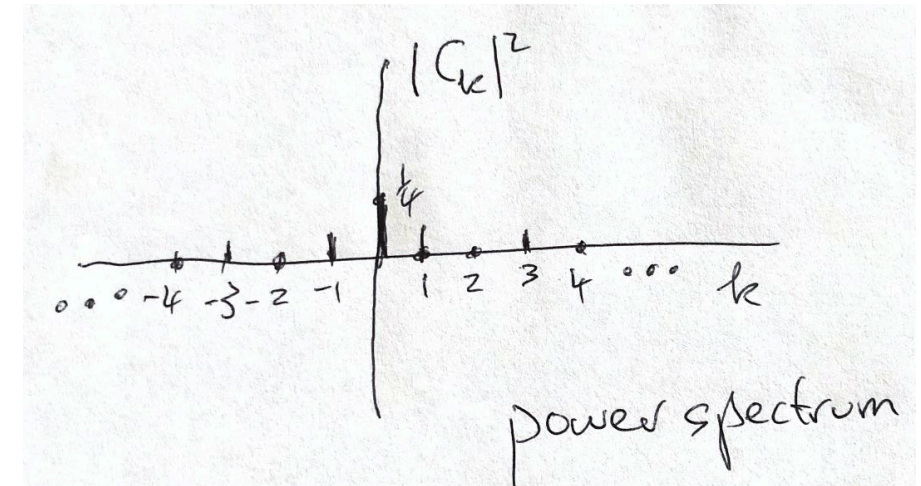 |C_k|²
1/4
∘ ∘ ∘ -4 -3 -2 -1 1 2 3 4 ∘ ∘ ∘ k
power spectrum